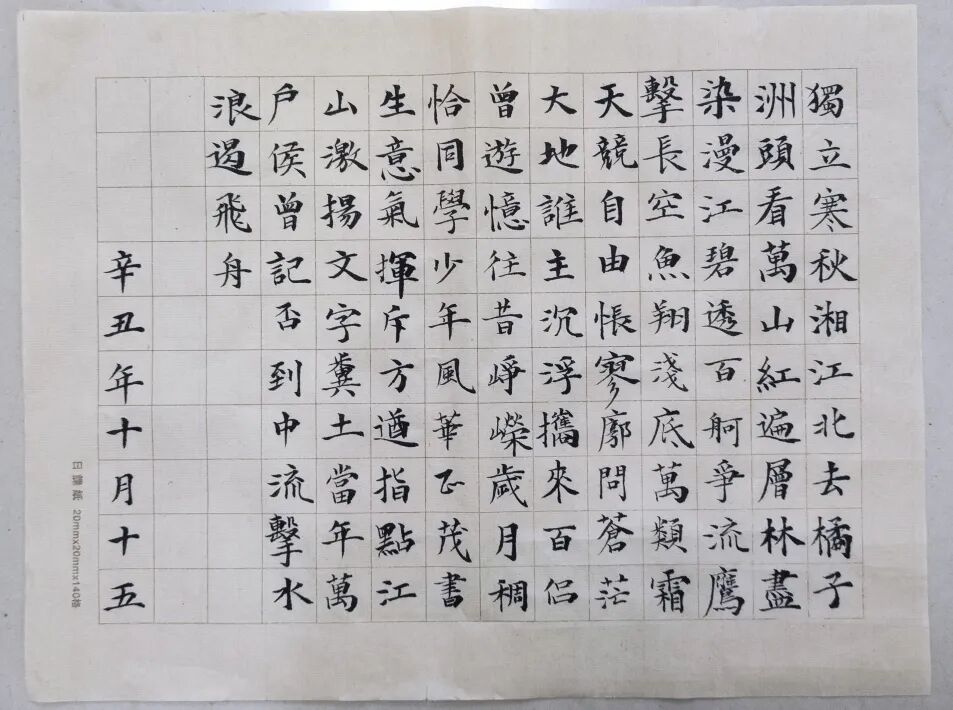 獨立寒秋湘江北去橘子
洲頭看萬山紅遍層林盡
染漫江碧透百舸爭流鷹
擊長空魚翔淺底萬類霜
天競自由悵寥廓問蒼茫
大地誰主沉浮攜來百侣
曾遊憶往昔崢嶸歲月稠
恰同學少年風華正茂書
生意氣揮斥方遒指點江
山激揚文字糞土當年萬
户侯曾記否到中流擊水
浪遏飛舟
辛丑年十月十五
20mmx20mmx140格